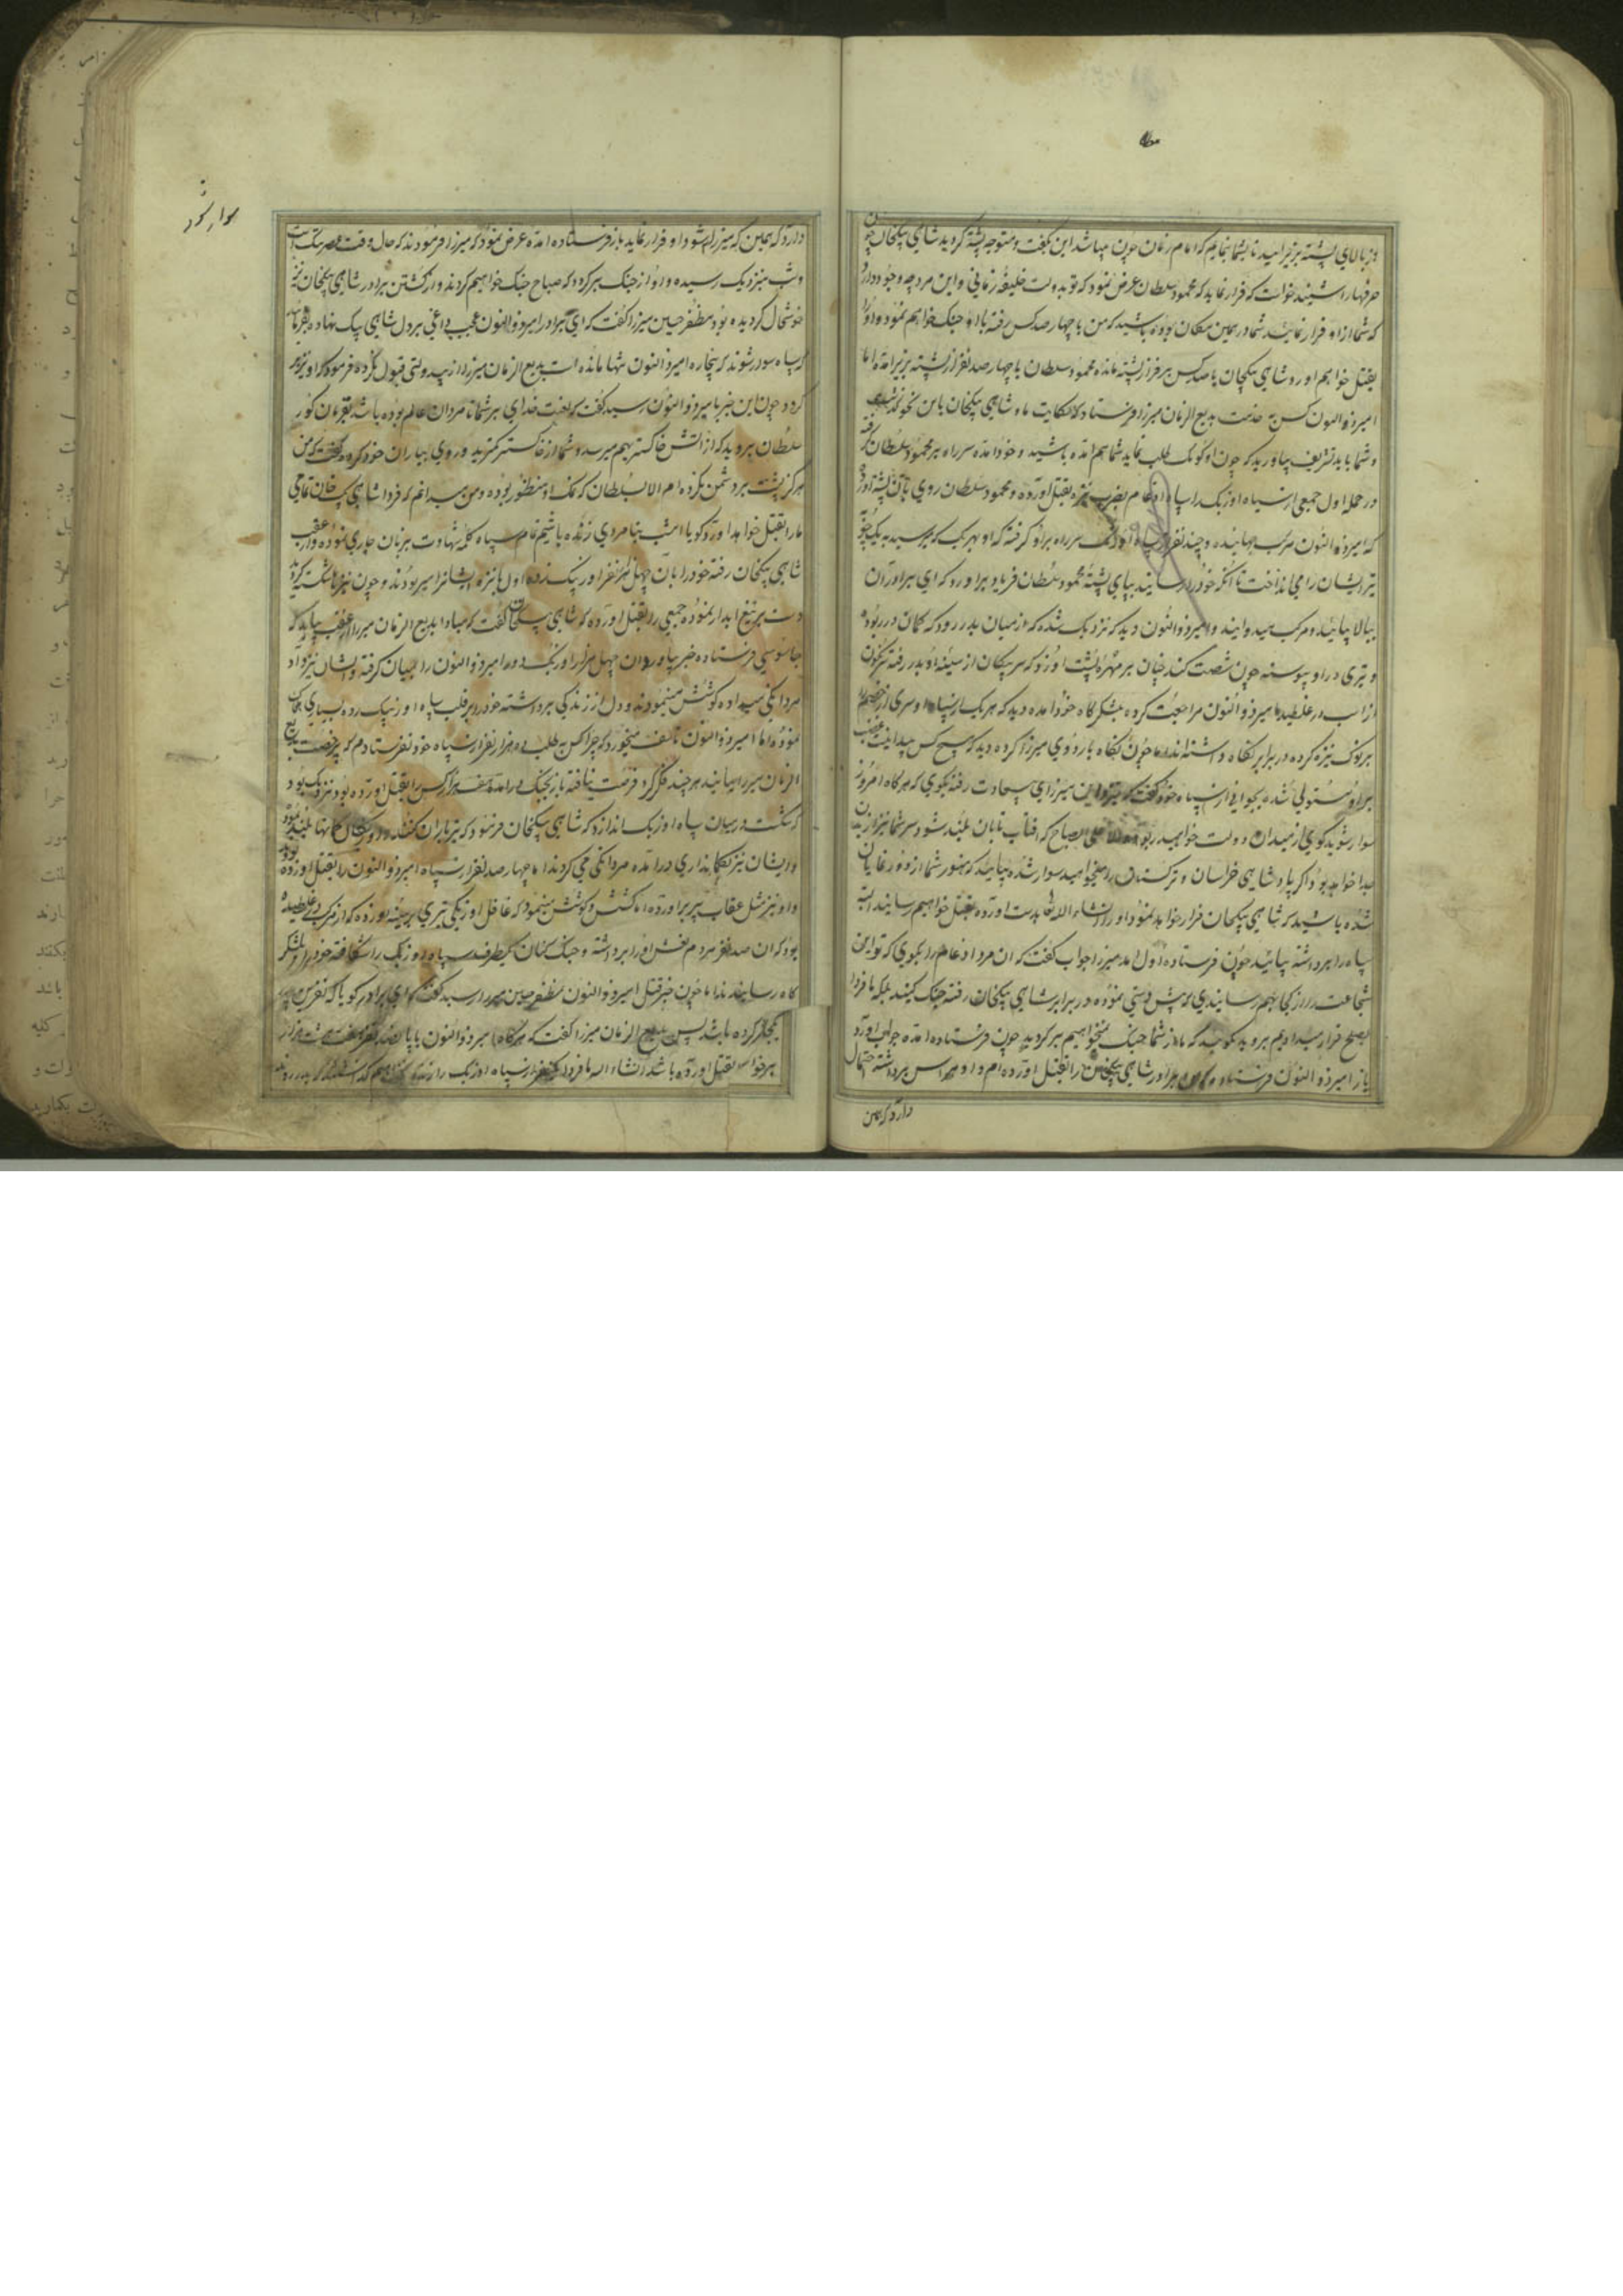 از بالای پشته بزیر آئید تا بشما بنمایم که امام زمان چون میباشد این بگفت و متوجه پشته گردید شاهی بیکخان چون
حرفها را شنید خواست که فرار نماید که محمود سلطان عرض نمود که تو بدولت خلیفه زمانی و این مرد چه وجود دارد
که شما از او فرار نمائید شما در همین مکان بوده باشید که من با چهار صد کس رفته با او جنک خواهم نمود و او را
بقتل خواهم آورد شاهی بیکخان با صد کس بر فراز پشته مانده محمود سلطان با چهار صد نفر از پشته بزیر آمد اما
امیر ذو النون کس به خدمت بدیع الزمان میرزا فرستاد که حکایت ما و شاهی بیکخان باین نحو شد
و شما باید تشریف بیاورید که چون او کومک طلب نماید شما هم آمده باشید و خود آمده سر راه بر محمود سلطان گرفته
در حمله اول جمعی از سپاه اوزبک را سپاه ارغام بضرب نیزه بقتل آورده و محمود سلطان روی بآن پشته آورد
که امیر ذو النون مرکب جهانیده و چند نفر سپاه اوزبک سر راه بر او گرفته که او بهر یک که میرسید به یک چوبه
تیر ایشان را می انداخت تا آنکه خود را رسانید بپای پشته محمود سلطان فریاد بر آورد که ای برادران
ببالا بیائید و مرکب میدوانید و امیر ذو النون دید که نزدیک شده که از میان بدر رود که کمان در ربود
و تیری در او پیوسته چون شصت کند چنان بر مهره پشت او زد که سر پیکان از سینه او بدر رفته سرنگون
از اسب در غلطید امیر ذو النون مراجعت کرده بلشکرگاه خود آمده دید که هر یک از سپاه او سری از خصم
بر نوک نیزه کرده در برابر نگاه داشته اند اما چون نگاه باردوی میرزا کرده دید که هیچ کس پیدا نیست غضب
بر او مستولی شده بجوانی از سپاه خود گفت که برو این میرزای بی سعادت رفته بگوی که هر گاه امروز
سوار شوید گوی از میدان دولت خواهید ربود و الا علی الصباح که آفتاب تابان بلند شود سر شما نیز از بدن
جدا خواهد بود اگر پادشاهی خراسان و ترکستان را میخواهید سوار شده بیائید که هنوز شما از دور نمایان
شده باشید که شاهی بیکخان فرار خواهد نمود او را انشاء الله بدست آورده بقتل خواهیم رسانید البته
سپاه را برداشته بیائید چون فرستاده اول آمد میرزا جواب گفت که آن مرد ارغام را بگوی که تو این
شجاعت را از کجا بهم رسانیدی که پیش دستی نموده در برابر شاهی بیکخان رفته جنک کنید بلکه ما فردا
بصلح قرار میدادیم بروید بگوئید که ما از شما جنک نمیخواهیم برگردید چون فرستاده آمده جواب آورد
باز امیر ذو النون فرستاد که من برادر شاهی بیکخان را بقتل آورده ام و او هراس برداشته احتمال
دارد که همین
دارد که همین که میرزا سوار شود او فرار نماید باز فرستاده آمده عرض نمود که میرزا فرمودند که حال وقت عصر تنک است
و شب نیز نزدیک رسیده و او از جنک برگردد که صباح جنک خواهیم کرد اند و از کشتن برادر شاهی بیکخان نیز
خوشحال گردیده بود مظفر حسین میرزا گفت که ای برادر امیر ذو النون عجب داغی بر دل شاهی بیک نهاده بفرمائید
که سپاه سوار شوند که بیچاره امیر ذو النون تنها مانده است بدیع الزمان میرزا از بیدولتی قبول نکرده فرمود که او نیز بر
گردد چون این خبر بامیر ذو النون رسید گفت که لعنت خدای بر شما نامردان عالم بوده باشد بفرمان کور
سلطان بروید که از آتش خاکستر بهم میرسد و شما از خاکستر کمترید و روی بیاران خود کرد و گفت که من
هرگز پشت بر دشمن نکرده ام الا بسلطان که نمک او منظور بوده و من میدانم که فردا شاهی بیک خان تمامی
ما را بقتل خواهد آورد گویا امشب بنامردی زنده باشیم تمام سپاه کلمه شهادت بزبان جاری نموده و از عقب
شاهی بیکخان رفته خود را بآن چهل هزار نفر اوزبک زده اول با نیزه ایشان را میربودند و چون نیزه ها شکست گردید
دست بر تیغ آبدار نموده جمعی را بقتل آورده که شاهی بیکخان گفت که مبادا بدیع الزمان میرزا از عقب بیاید که
جاسوسی فرستاده خبر بیاورد و آن چهل هزار اوزبک دور امیر ذو النون را بمیان گرفته و ایشان نیز داد
مردانگی میدادند و کوشش مینمودند و دل از زندگی برداشته خود را بر قلب سپاه اوزبک زده بسیاری هلاک
نموده اما امیر ذو النون تاسف میخورد که چرا کس به طلب ده هزار نفر از سپاه خود نفرستادم که بی رخصت بدیع
الزمان میرزا بیایند هر چند فکر کرد فرصت نیافته باز بجنک در آمده هفت هزار کس را بقتل آورده بود نزدیک بود
که شکست در میان سپاه اوزبک اندازد که شاهی بیکخان فرمود که تیر باران کنند و از کمان کمانها بلند بود
و ایشان نیز بکمانداری در آمده مردانگی می کردند اما چهار صد نفر از سپاه امیر ذو النون را بقتل آورده بودند
و او نیز مثل عقاب پر بر آورده اما کشش و کوشش مینمود که غافل اوزبکی تیری بر سینه او زده که از مرکب در غلطیده
بود که آن صد نفر مردم نعش او را برداشته و جنک کنان یکطرف سپاه اوزبک را شکافته خود را بلشکر
گاه رسانیدند اما چون خبر قتل امیر ذو النون بمظفر حسین میرزا رسید گفت که ای برادر گویا که نفرین پدر
کار کرده باشد پس بدیع الزمان میرزا گفت که هرگاه امیر ذو النون با پانصد نفر هفت هشت هزار
نفر را بقتل آورده باشد انشاء الله ما فردا یکنفر از سپاه اوزبک را زنده نخواهیم گذاشت که بدر رود
سوار شود